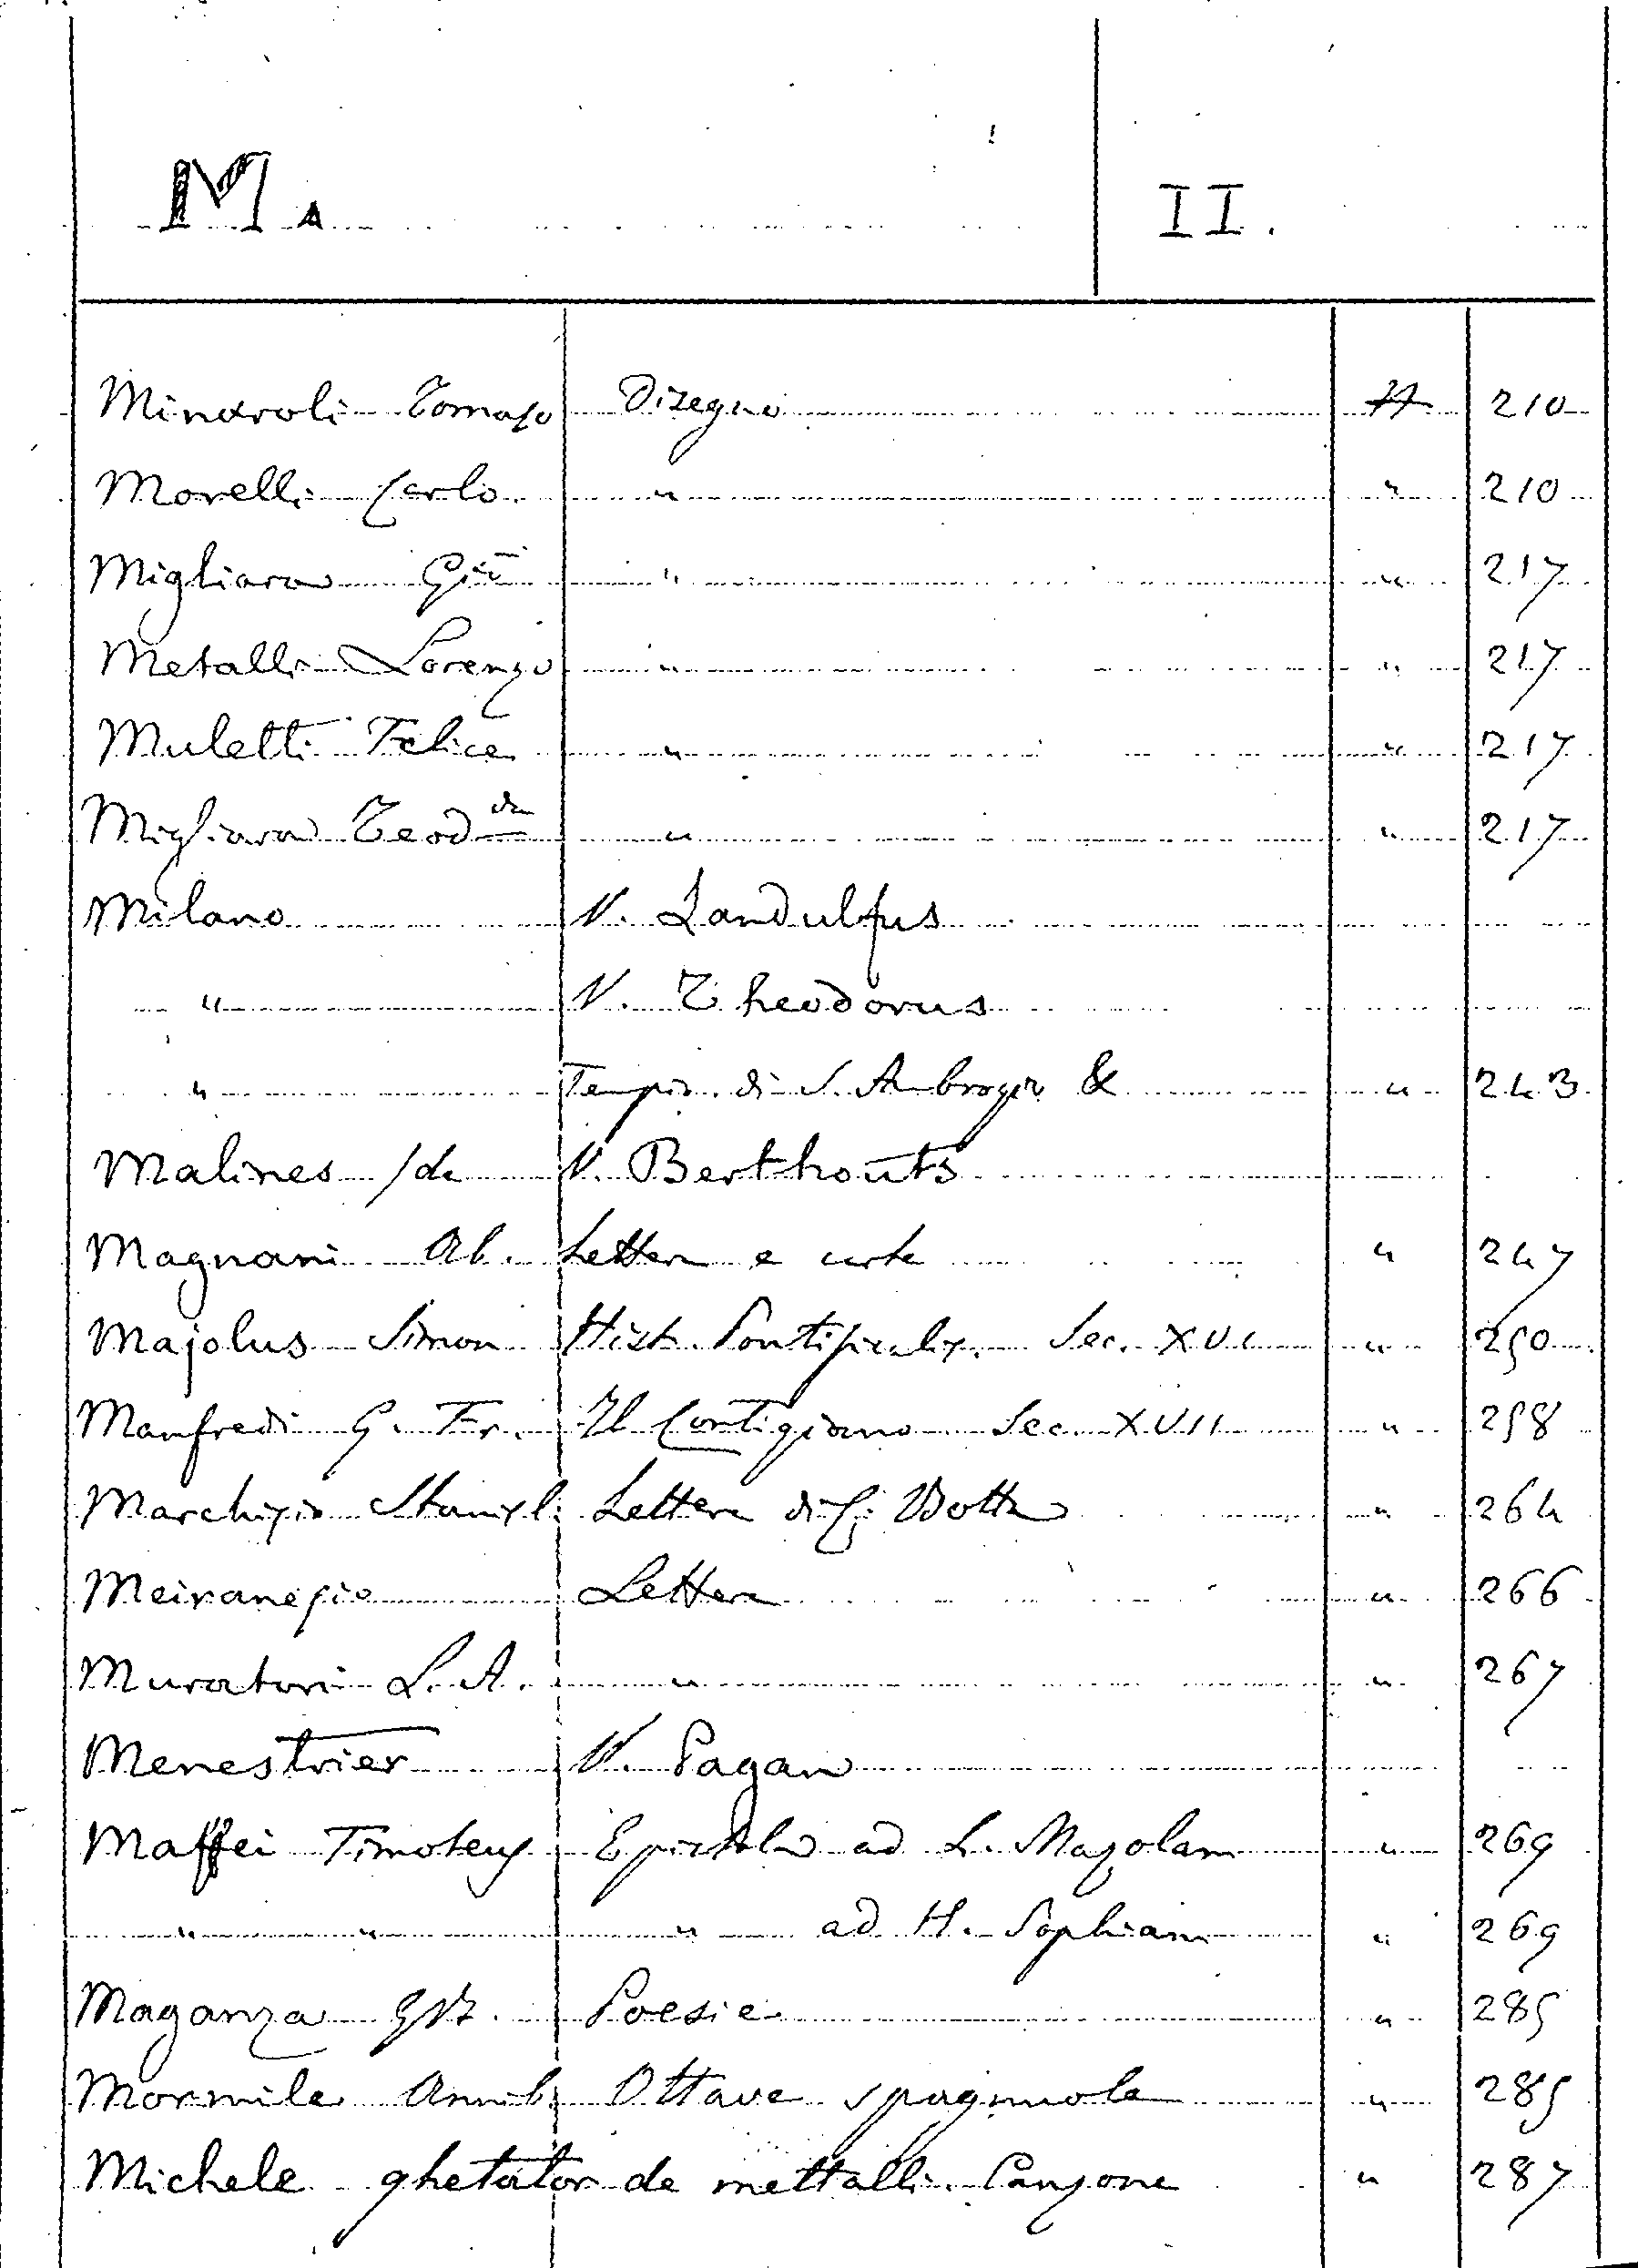 M. II.
Minaroli Tomaso Disegno 210
Morelli Carlo " " 210
Migliara Giō " " 217
Metalli Lorenzo " " 217
Muletti Felice " " 217
Migliara Teod " " 217
Milano V. Landulfus
" V. Theodorus
" Tempio di S. Ambrogio & " 243
Malines /de V. Berthouts
Magnani Ab. Lettera e carte " 247
Majolus Simon Hist. Pontificalis. Sec. XVI " 250
Manfredi G. Fr. Il Cortigiano Sec. XVII " 258
Marchisio Stanisl. Lettera di Botta " 264
Meiranesio Lettera " 266
Muratori L. A. " " 267
Menestrier V. Pagan
Maffei Timoteus Epistola ad L. Mazolam " 269
" " " ad H. Sophiam " 269
Maganza GB. Poesie " 285
Mormile Annib. Ottave spagnuole " 285
Michele ghetator de mettalli. Canzone " 287